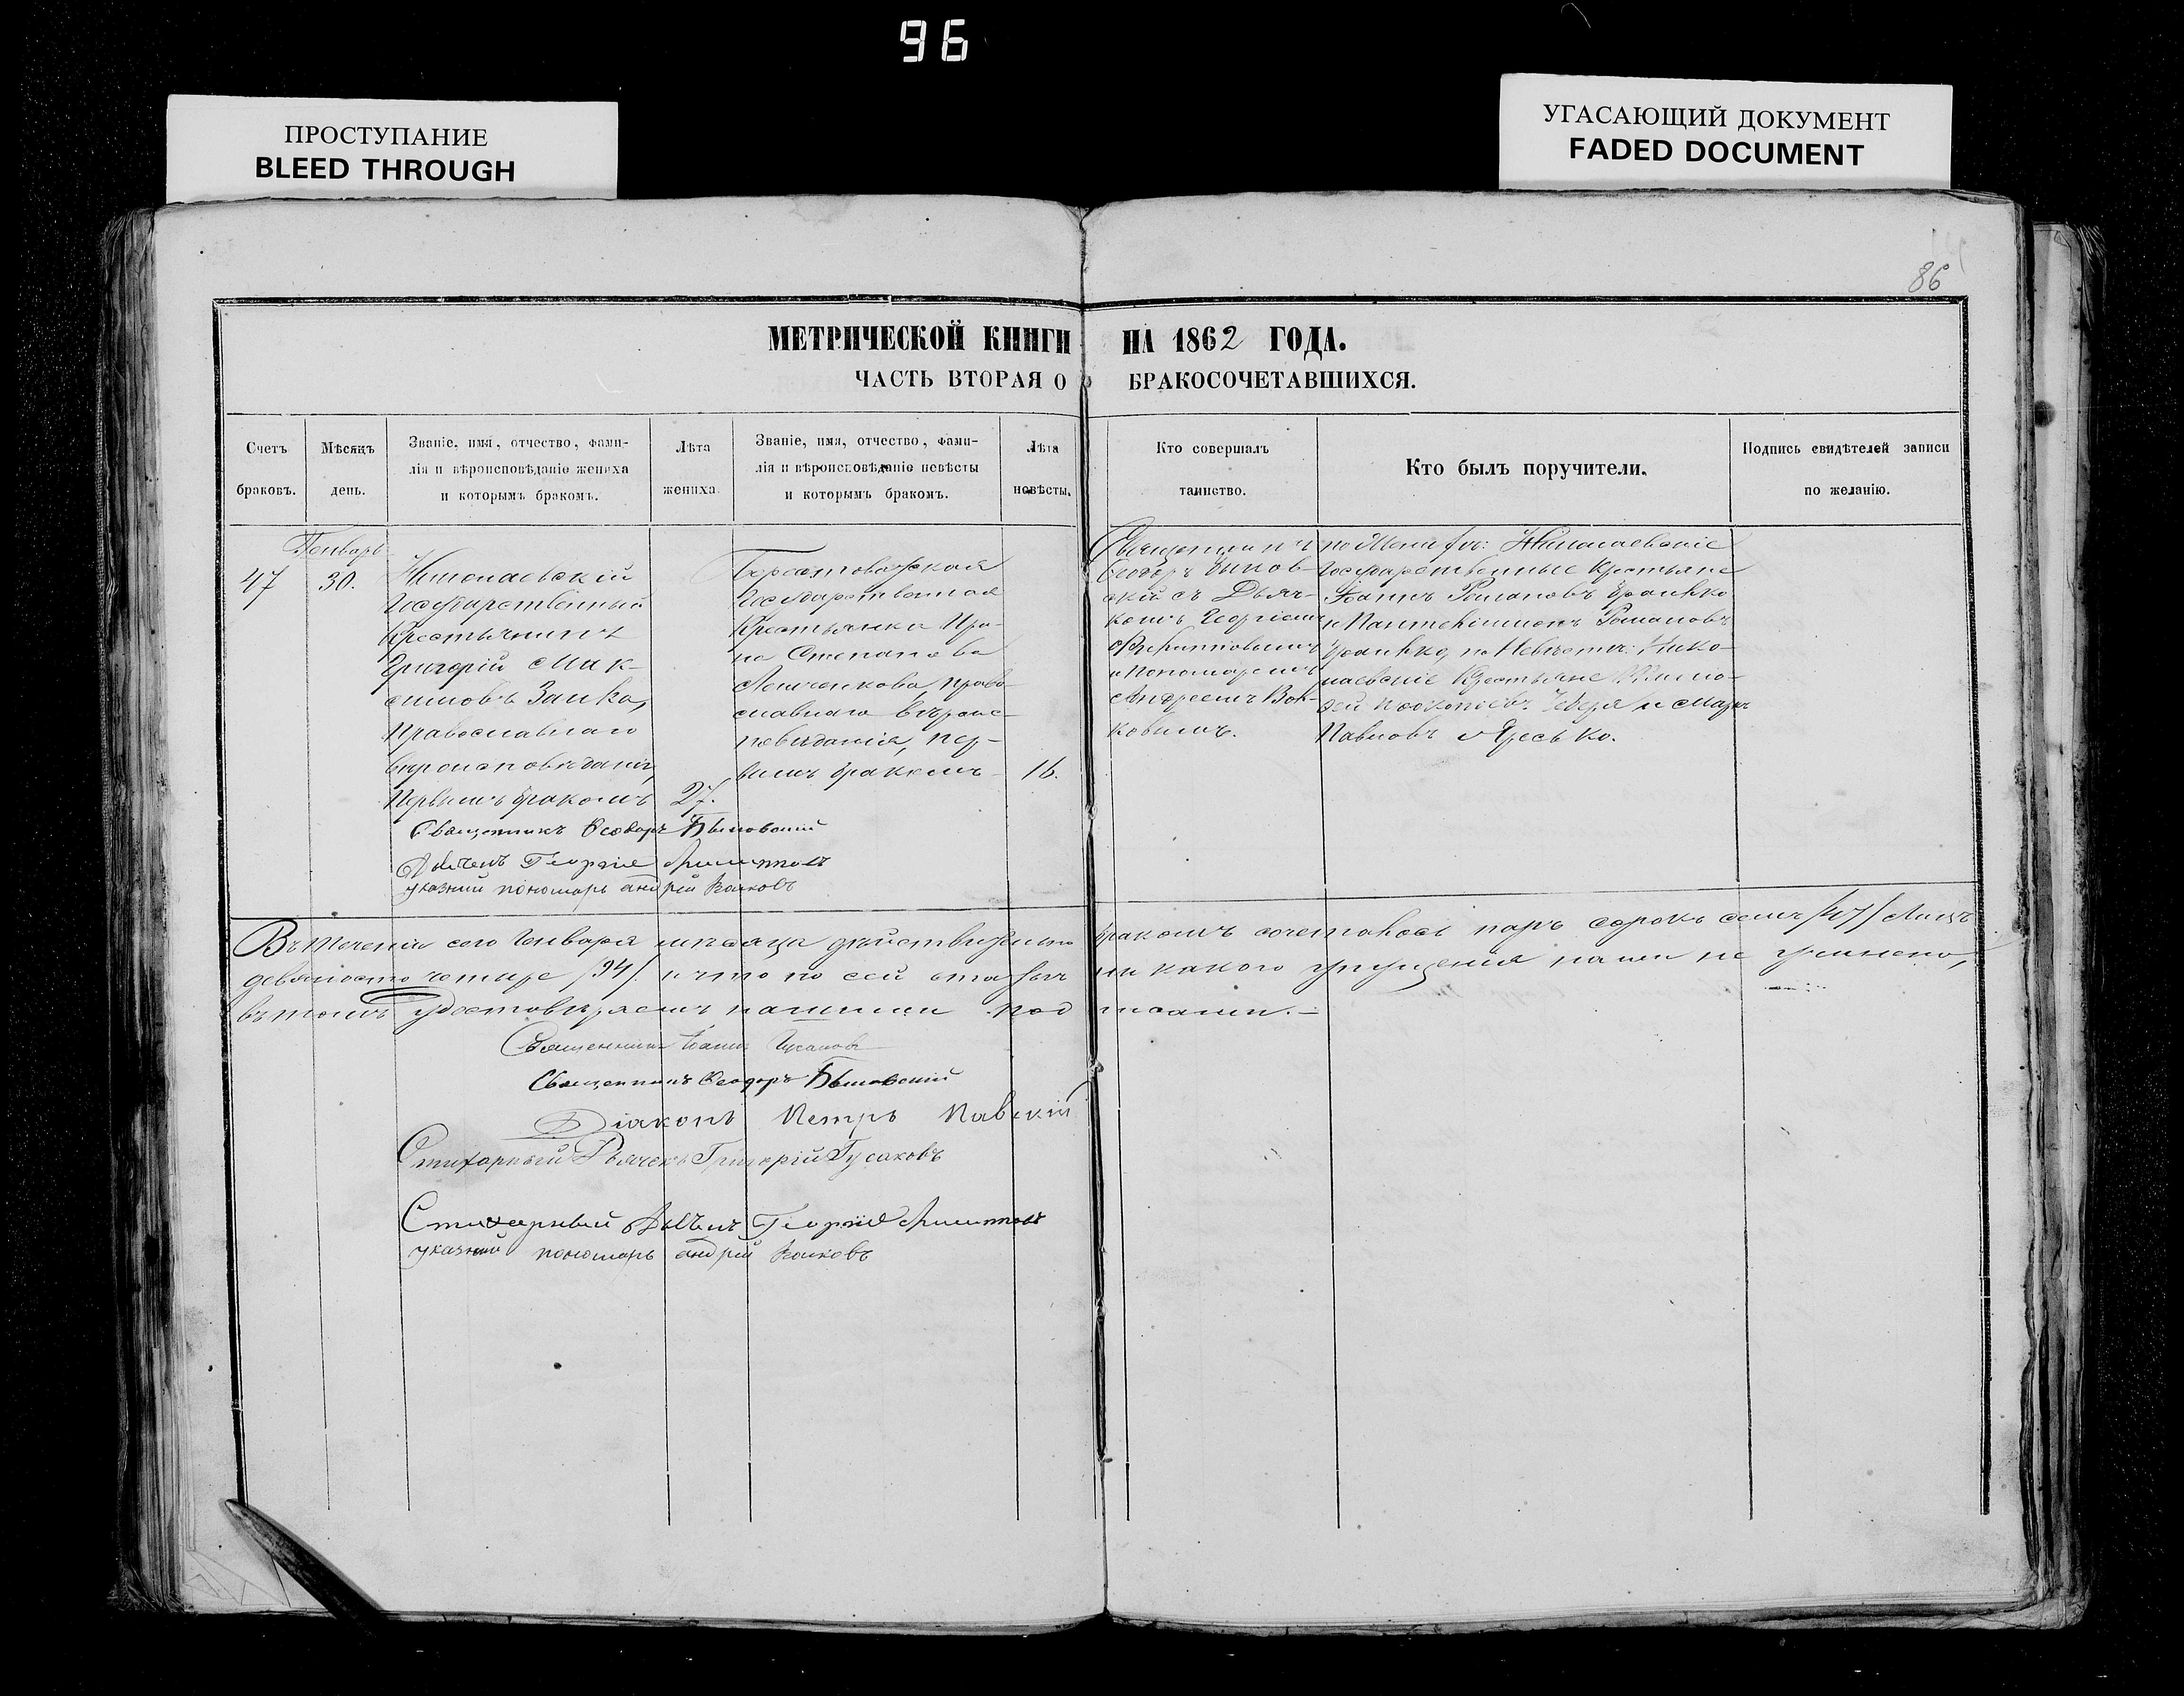 96
ПРОСТУПАНИЕ
BLEED THROUGH
УГАСАЮЩИЙ ДОКУМЕНТ
FADED DOCUMENT
86
МЕТРИЧЕСКОЙ КНИГИ НА 1862 ГОДА.
ЧАСТЬ ВТОРАЯ О БРАКОСОЧЕТАВШИХСЯ.
Счетъ
браковъ.
Мѣсяцъ
день.
Званіе, имя, отчество, фами-
лія и вѣроисповѣданіе жениха
и которымъ бракомъ.
Лѣта
жениха.
Званіе, имя, отчество, фами-
лія и вѣроисповѣданіе невѣсты
и которымъ бракомъ.
Лѣта
невѣсты.
Кто совершалъ
таинство.
Кто былъ поручители.
Подпись свидѣтелей записи
по желанію.
Генварь
47
30.
Николаевскій
Государственный
Крестьянинъ
Григорій Мак-
симовъ Заика,
Православнаго
вѣроисповѣданія,
Первымъ бракомъ
27.
Берестоватская
Государственная
Крестьянка Ири-
на Степанова
правo-
славнаго вѣроис-
повѣданія, пер-
вымъ бракомъ
16.
Священникъ
Ѳеодоръ
скій съ Дьяч-
комъ Георгіемъ
Филипповымъ
и Пономаремъ
Андреемъ Вол-
ковымъ.
по Женихѣ: Николаевскіе
Государственные Крестьяне
Іоаннъ Романовъ
и Пантелеимонъ Романовъ
по Невѣстѣ: Нико-
лаевскіе Крестьяне Тимо-
фей Прокопіевъ и Марко
Павловъ Яресько.
Священникъ Ѳеодоръ
Дьячекъ Георгій Филипповъ
указный пономарь андрей Волковъ
Въ теченіи сего Генваря мѣсяца дѣйствительно бракомъ сочеталось паръ сорокъ семь /47/ лицъ
девяносто четыре /94/. и что по сей статьѣ ни какого упущенія нами не учинено,
въ томъ удостовѣряемъ нашими под писами.
Священникъ Іоаннъ Гусаковъ
Священникъ Ѳеодоръ
Діаконъ Петръ Павскій
Стихарный Дьячекъ Григорій Гусаковъ
Стихарный Дьячекъ Георгій Филипповъ
указный пономарь андрей Волковъ